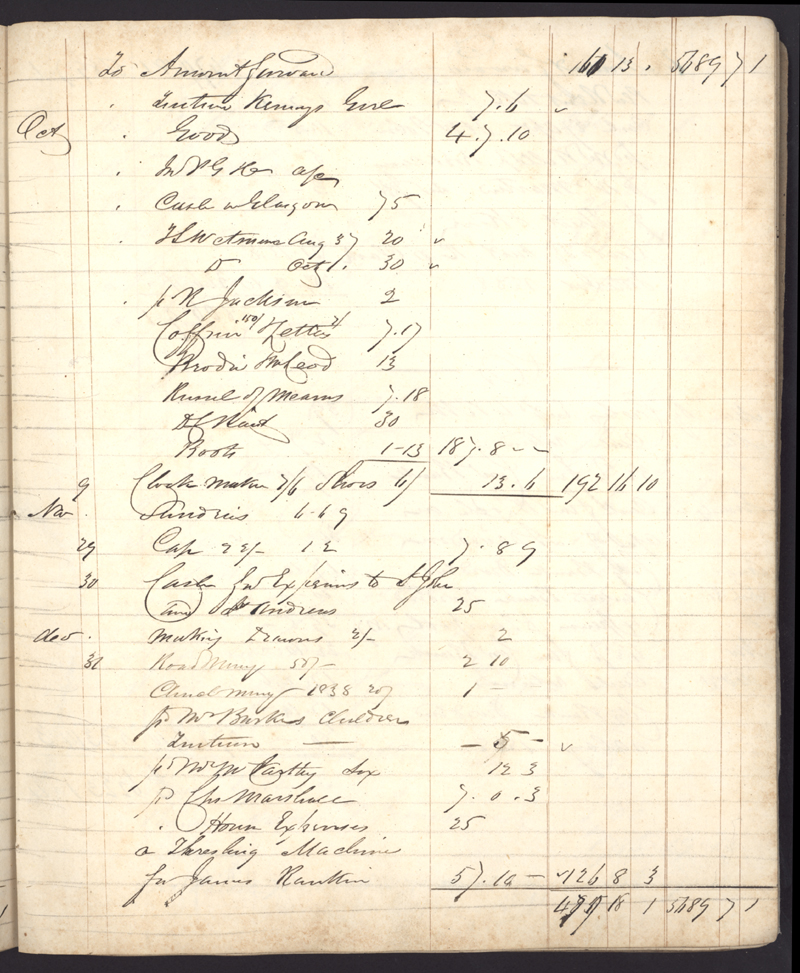 To Amount forward 160 13 . 5689 7 1
. Tuition Kennys Girl 7.6
Oct . Goods 4.7.10
. a/c
. Cash in Glasgow 75
. Aug 37 20
Do Oct 1. 30
. pr R Jackson 2
Coffin 150/ 7.17
McLeod 13
of Mearns 7.18
30
Boots 1-13 187.8 - -
9 Clock maker 7/6 Shoes 6/ 13.6 192 16 10
Nov . Sundries 6-6 9
29 Cap 22/- 12 7.8 9
30 Cash for Expenses to St John
and St Andrews 25
dec . making Drawers 2/- 2
31 Road Money 50/- 2 10
Money 1838 20/ 1 -
pd Mr Burkes Children
Tuition - 5 -
pd McCarthy Sox 12 3
pd Chs Marshall 7.0.3
. House Expenses 25
a Threshing Machine
for James Rankin 57.10 - 126 8 3
18 1 5689 7 1